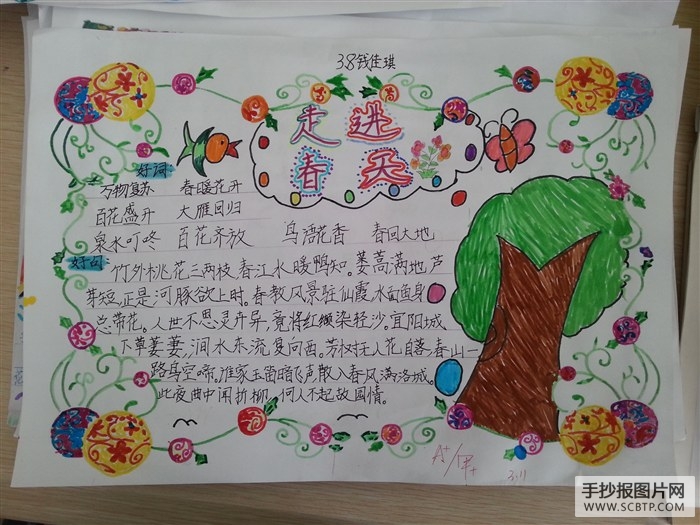 38钱佳琪
走进
春天
好词
万物复苏 春暖花开
百花盛开 大雁回归
泉水叮咚 百花齐放 鸟语花香 春回大地
好句
竹外桃花三两枝,春江水暖鸭知。蒌蒿满地芦
芽短,正是河豚欲上时。春教风景驻仙霞,水面鱼身
总带花。人世不思灵卉异,竟将红缬染轻沙。宜阳城
下草萋萋,涧水东流复向西。芳树无人花自落,春山一
路鸟空啼。谁家玉笛暗飞声,散入春风满洛城。
此夜曲中闻折柳,何人不起故园情。
3.11
手抄报图片网
WWW.SCBTP.COM